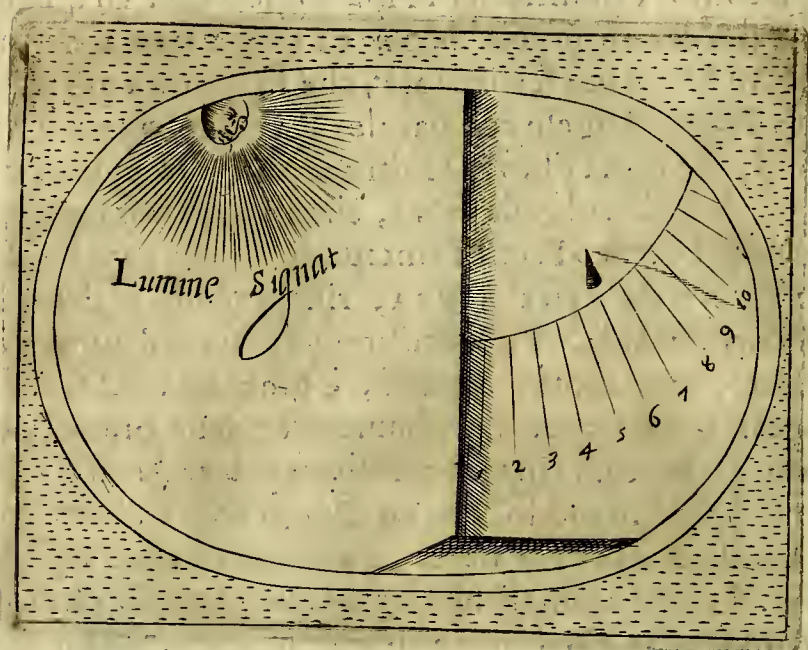 Lumine signat
2 3 4 5 6 7 8 9 10